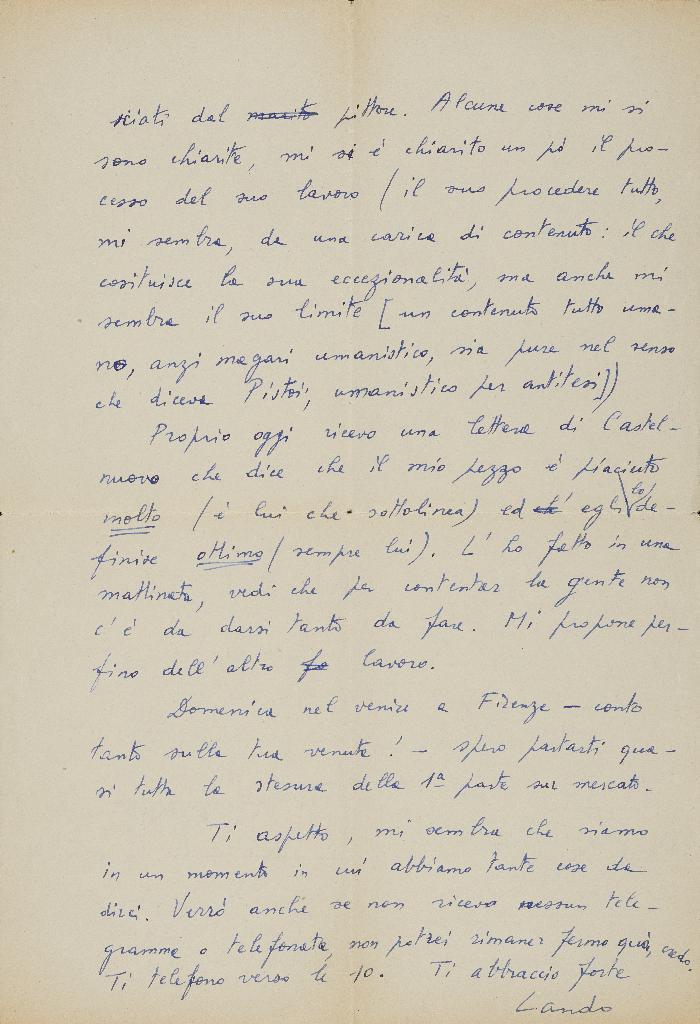 sciati dal marito pittore. Alcune cose mi si
sono chiarite, mi si è chiarito un pò il pro-
cesso del suo lavoro (il suo procedere tutto,
mi sembra, da una carica di contenuto: il che
cosituisce la sua eccezionalità, ma anche mi
sembra il suo limite [un contenuto tutto uma-
no, anzi magari umanistico, sia pure nel senso
che diceva Pistoi, umanistico per antitesi])
Proprio oggi ricevo una lettera di Castel-
nuovo che dice che il mio pezzo è piaciuto
molto (è lui che sottolinea) ed egli lo de-
finisce ottimo (sempre lui). L'ho fatto in una
mattinata, vedi che per contentar la gente non
c'è da darsi tanto da fare. Mi propone per-
fino dell'altro fa lavoro.
Domenica nel venire a Firenze - conto
tanto sulla tua venuta! - spero portarti qua-
si tutta la stesura della 1ª parte sul mercato.
Ti aspetto, mi sembra che siamo
in un momento in cui abbiamo tante cose da
dirci. Verrò anche se non ricevo nessun tele-
gramma o telefonata, non potrei rimaner fermo qua, credo.
Ti telefono verso le 10. Ti abbraccio forte
Lando